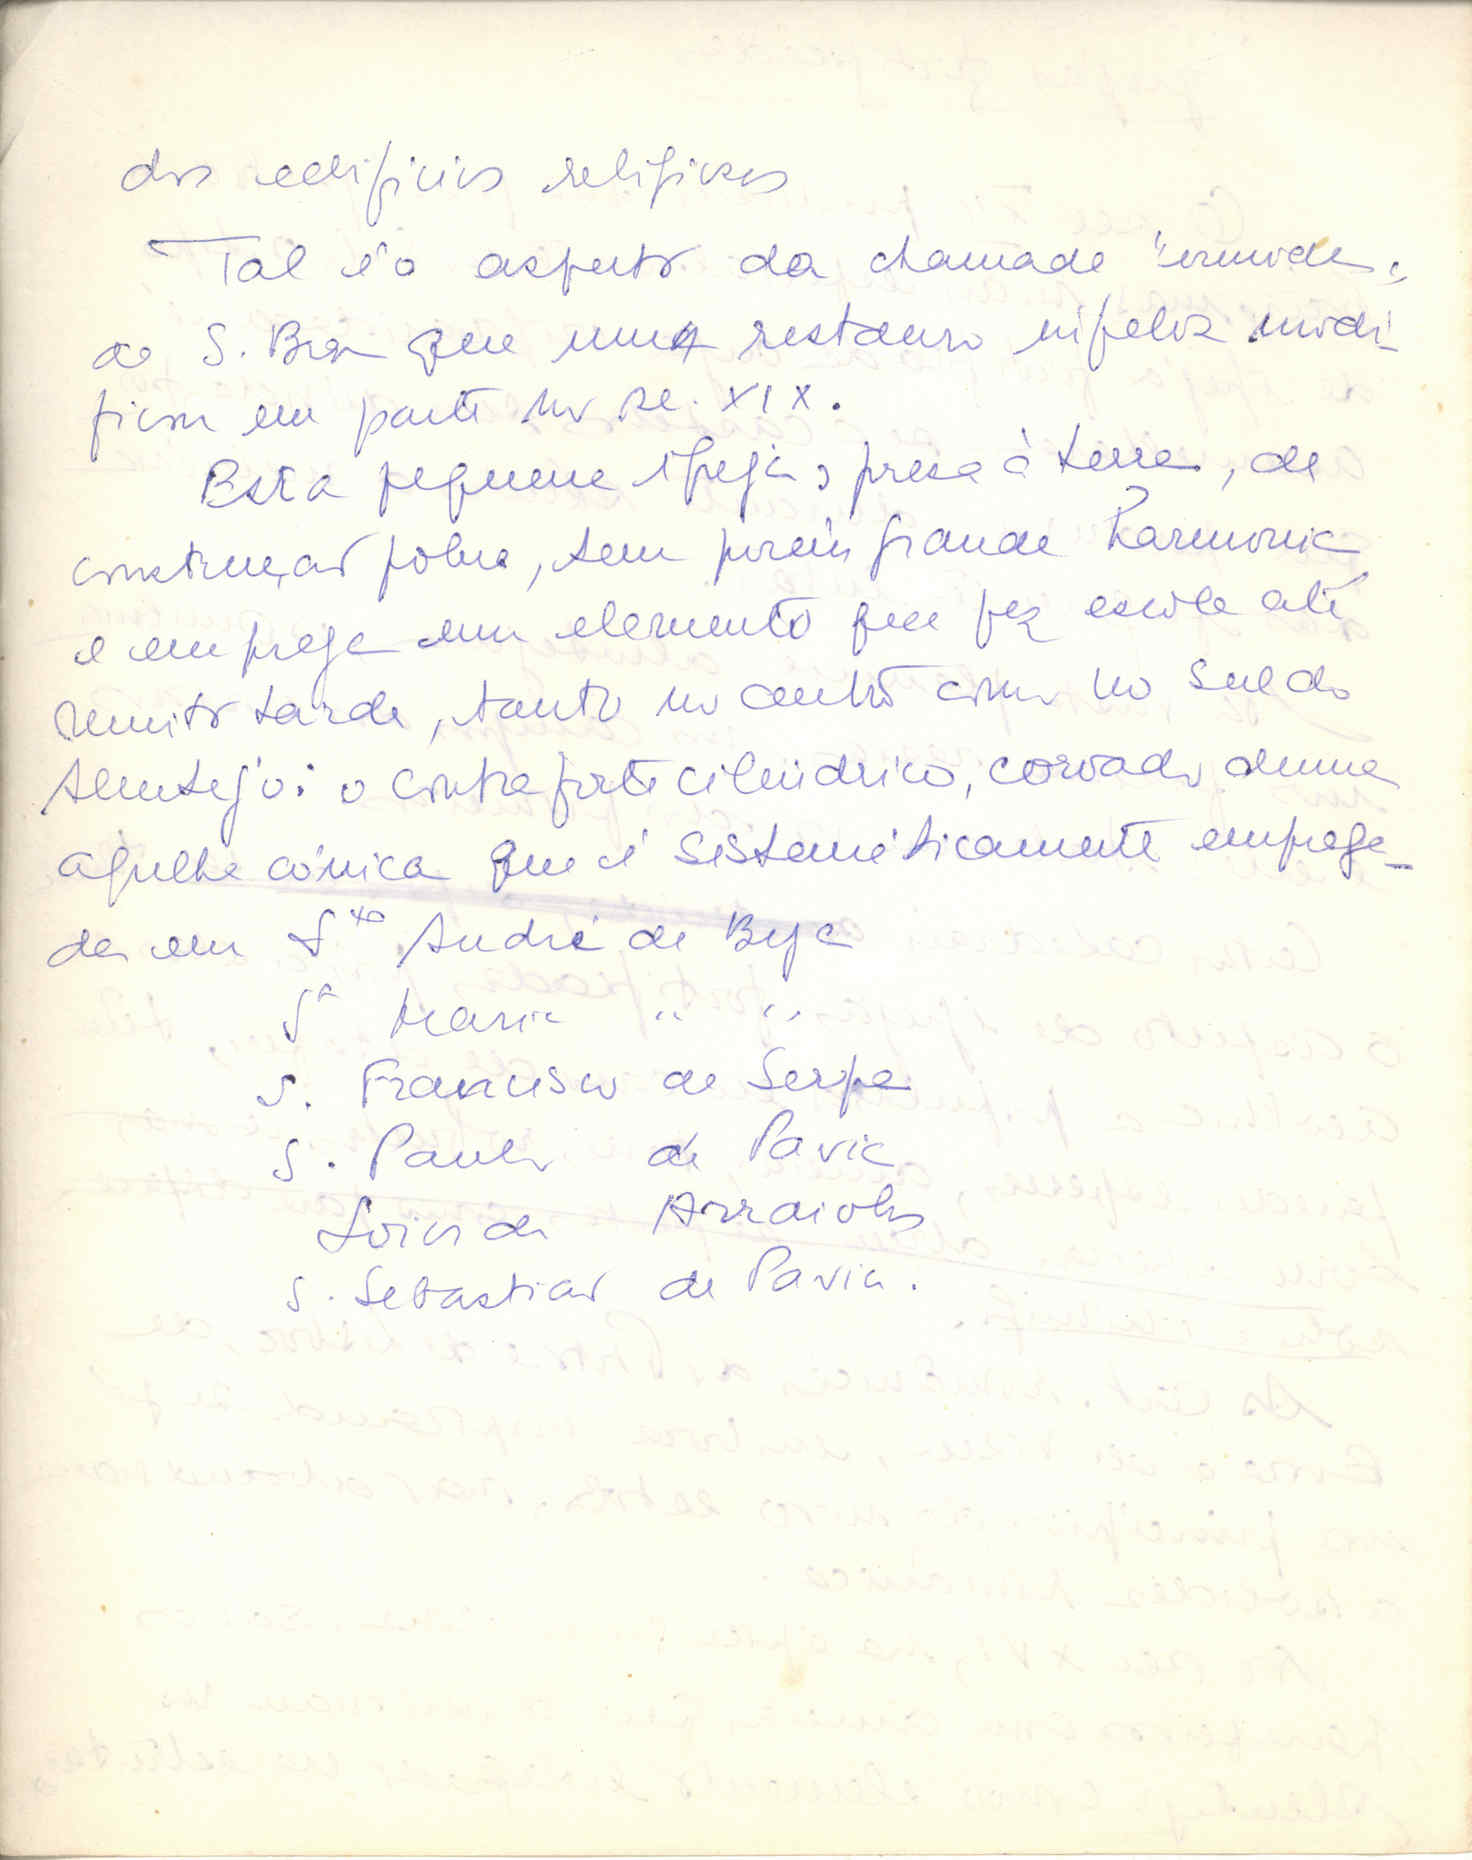 dos edificios religiosos
Tal é o aspecto da chamada "ermida"
de S. Braz que um restauro infeliz modi-
ficou em parte no sec. XIX.
Esta pequena igreja, presa à terra, de
construção pobre, tem porém grande harmonia
e emprega um elemento que fez escola até
muito tarde, tanto no centro como no sul do
Alentejo: o contraforte cilindrico, coroado duma
agulha cónica que é sistemáticamente emprega-
da em Sto André de Beja
Sª Maria " "
S. Francisco de Serpa
S. Paulo de Pavia
Arraiolos
S. Sebastião de Pavia.